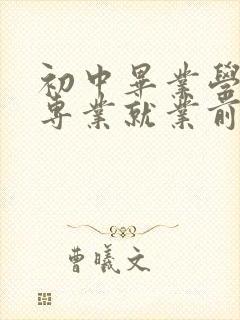 初中畢業學
専業就業前
曹曦文